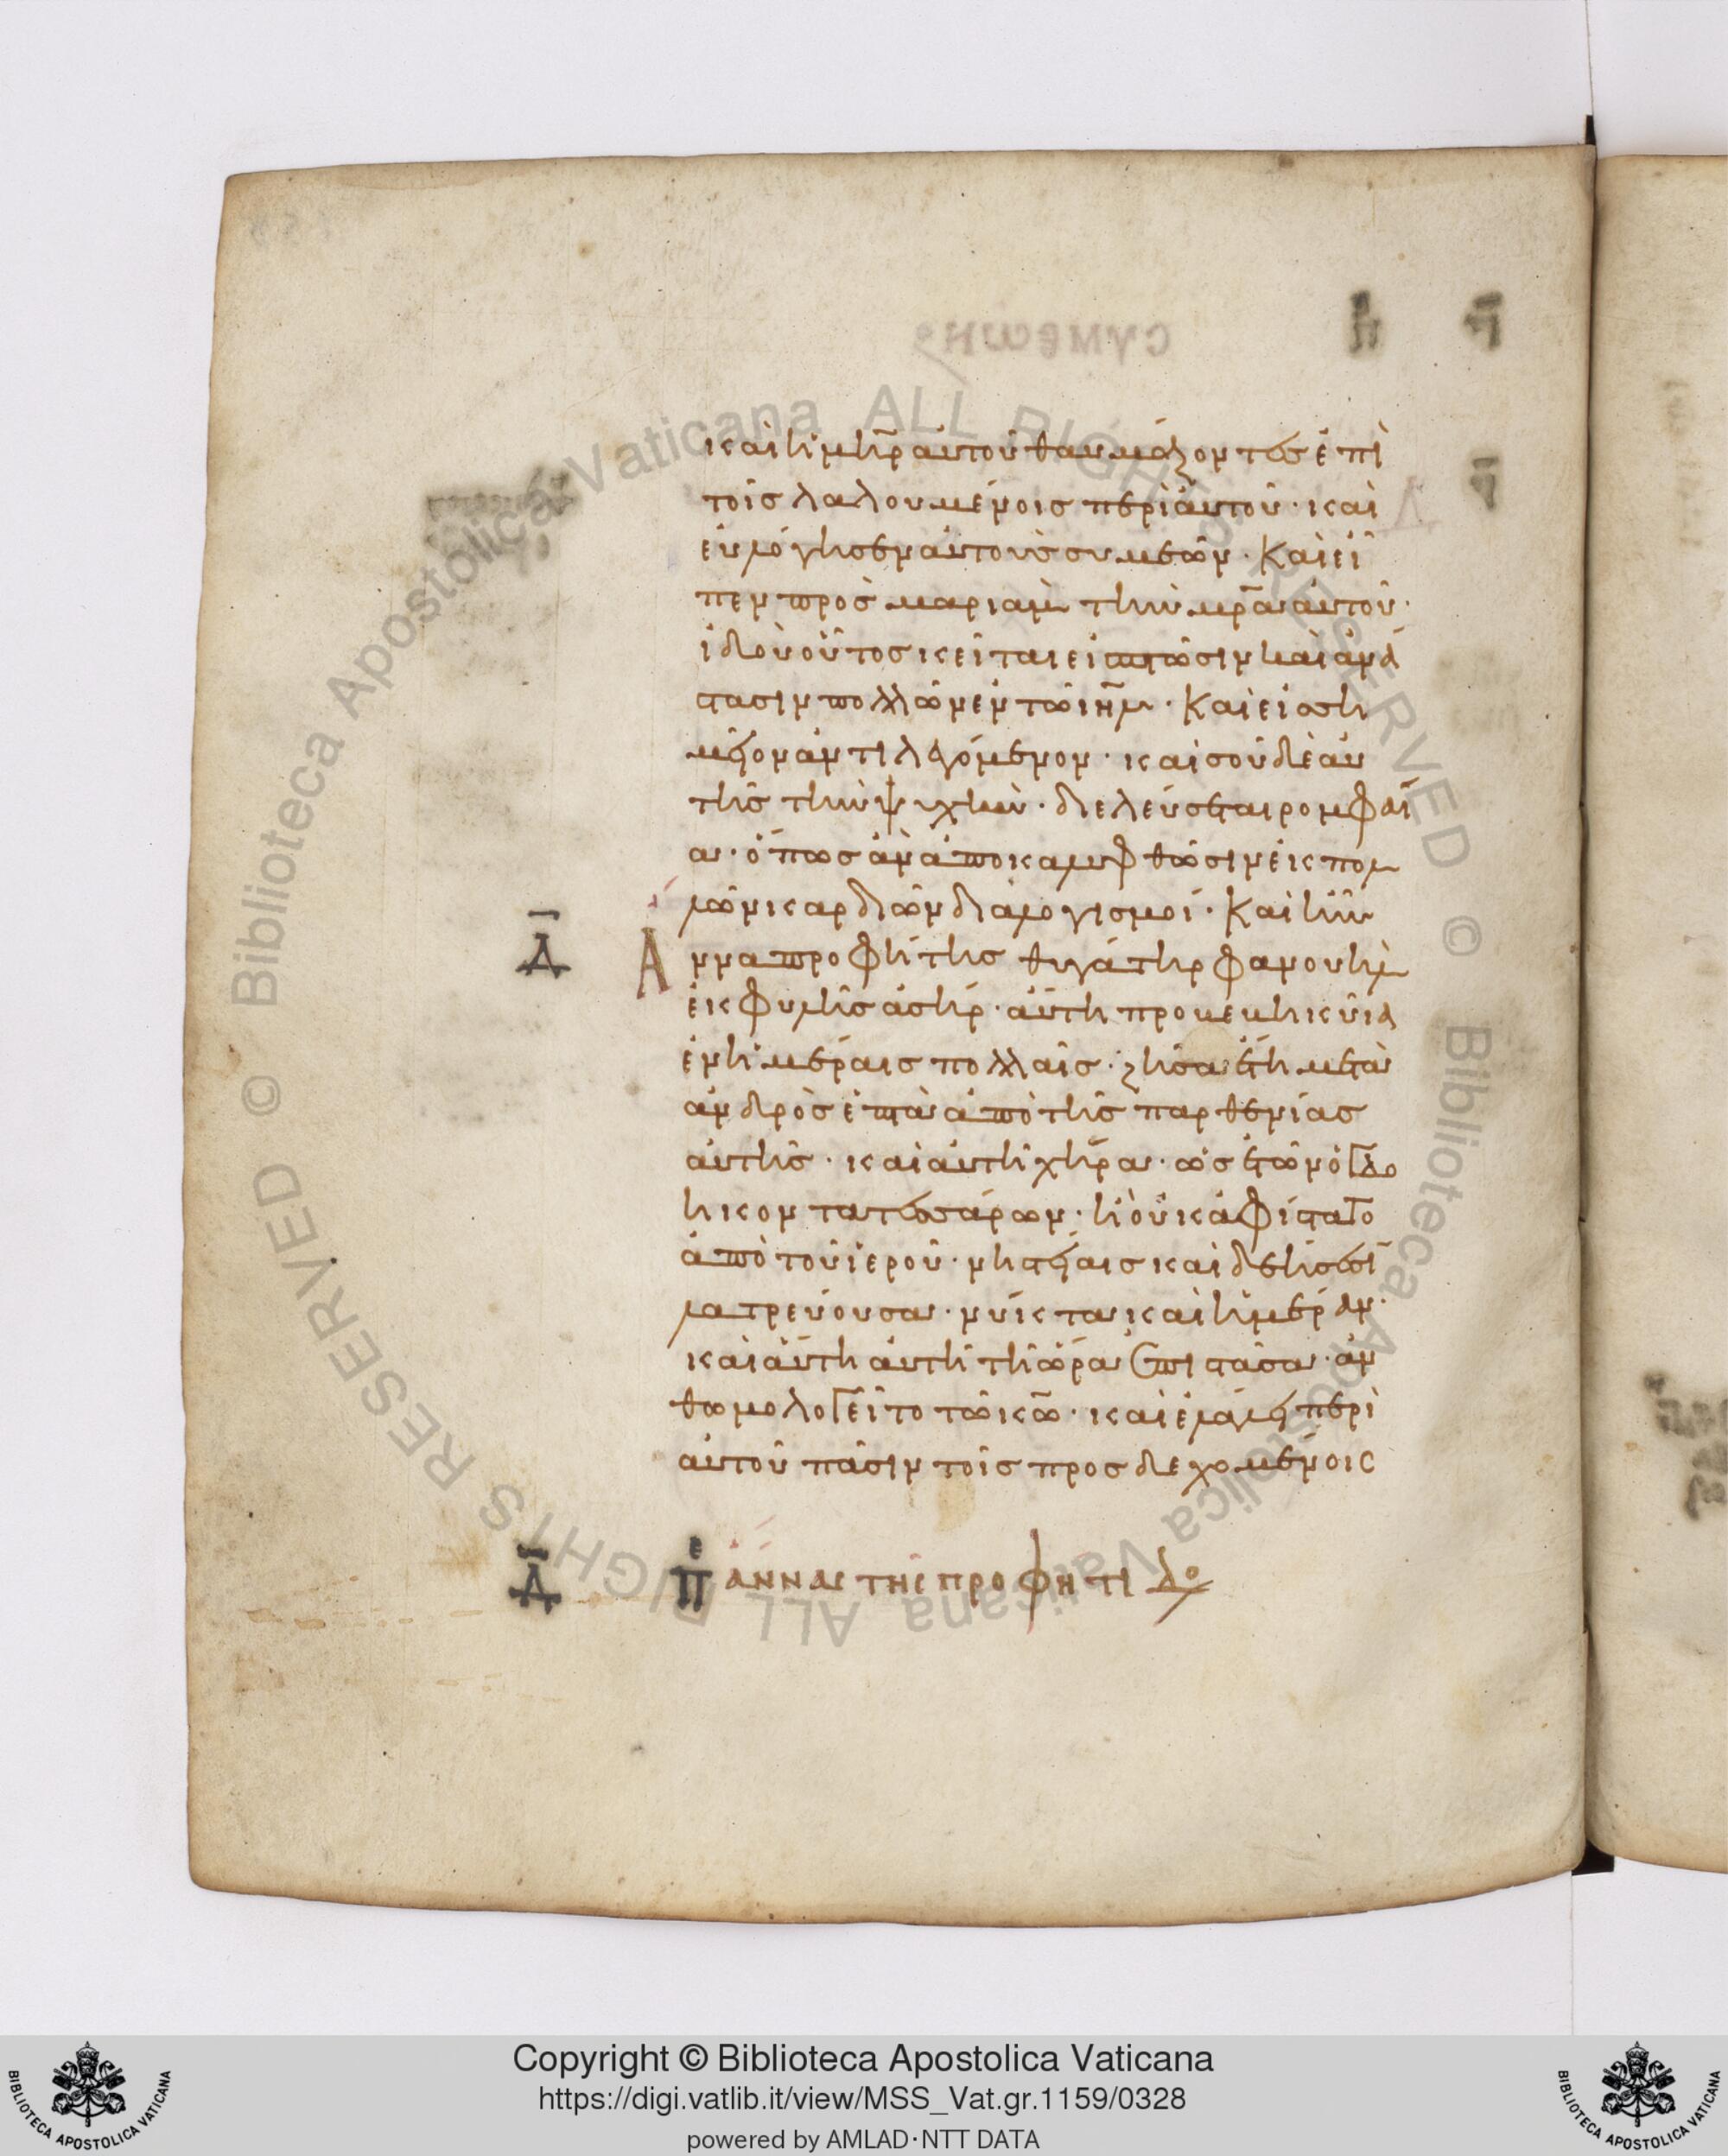 και ἡ μη̅ρ αὐτοῦ θαυμάζοντες ἐπὶ
τοῖς λαλουμένοις περὶ αὐτοῦ· καὶ
εὐλόγησεν αὐτοὺς συμεών· Καὶ εἶ
πεν πρὸς μαριὰμ τὴν μρ̅α αὐτοῦ·
ἰδοὺ οὗτος κεῖται εἰς πτῶσιν καὶ ἀνά
στασιν πολλῶν ἐν τῶ ιη̅λ· Καὶ εἰς ση
μεῖον ἀντιλεγόμενον· καὶ σοῦ δὲ αὐ
τῆς τὴν ψυχὴν· διελεύσεται ρομφαί
α· ὅπως ἂν ἀποκαλυφθῶσιν ἐκ πολ
λῶν καρδιῶν διαλογισμοί· Καὶ ἦν
Α̅
Αννα προφήτις θυγάτηρ φανουὴλ
ἐκ φυλῆς ἀσήρ· αὕτη προβεβηκυῖα
ἐν ἡμέραις πολλαῖς· ζήσασα ἔτη μετὰ
ἀνδρὸς ἑπτὰ ἀπὸ τῆς παρθενίας
αὐτῆς· καὶ αὐτὴ χήρα· ὡς ἐτῶν ὀγδο
ηκοντατεσσάρων· ἣ οὐκ ἀφίστατο
ἀπὸ τοῦ ἱεροῦ· νηστείαις καὶ δεήσεσι
λατρεύουσα· νύκτα καὶ ἡμέραν·
καὶ αὕτη αὐτῆ τῆ ὥρα ἐπιστᾶσα· ἀν
θωμολογεῖτο τῶ κω̅· καὶ ἐλάλει περὶ
αὐτοῦ πᾶσιν τοῖς προσδεχομένοις
Δ̅ πε ἄννας τῆς προφήτιδο
Copyright © Biblioteca Apostolica Vaticana
https://digi.vatlib.it/view/MSS_Vat.gr.1159/0328
powered by AMLAD·NTT DATA
BIBLIOTECA APOSTOLICA VATICANA
BIBLIOTECA APOSTOLICA VATICANA
Biblioteca Apostolica Vaticana ALL RIGHTS RESERVED ©
Biblioteca Apostolica Vaticana ALL RIGHTS RESERVED ©